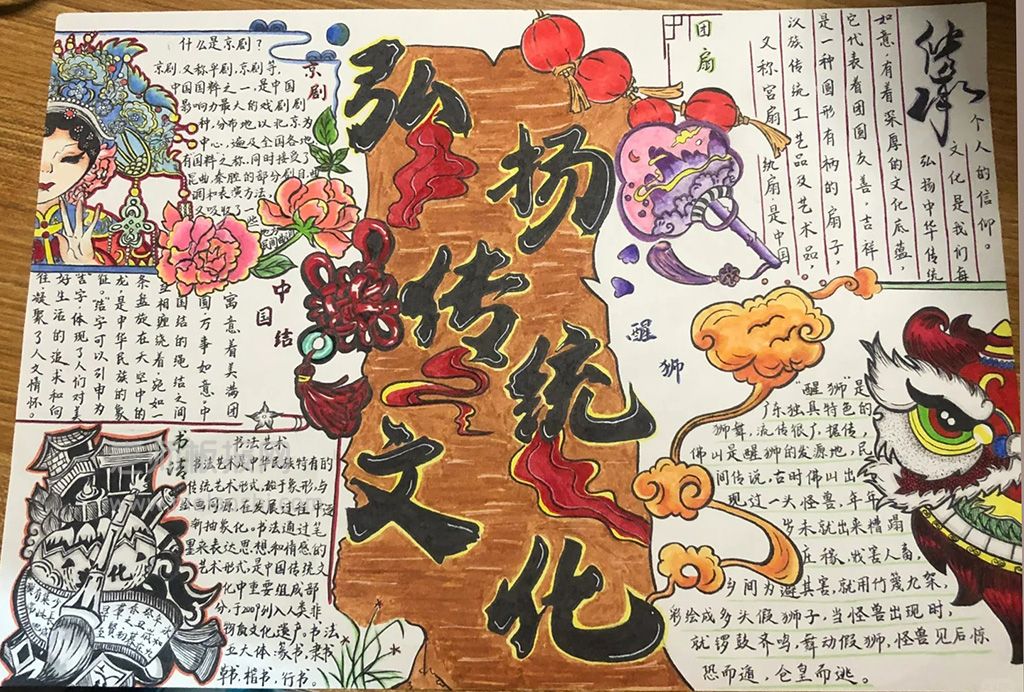 弘扬传统文化
什么是京剧？
京剧
京剧，又称平剧，京剧等，
中国国粹之一，是中国
影响力最大的戏剧剧
种，分布地以北京为
中心，遍及全国各地
有国粹之称。同时接受了
昆曲、秦腔的部分剧目曲
调和表演方法，
又吸收了一
些
地方
民间曲调
中国结
寓意着美满团
圆，万事如意。中
国结的绳结之间
互相缠绕着，宛如一
条盘旋在天空中的
龙，是中华民族的象
征。"结"字可以引申为
"吉"字，体现了人们对美
好生活的追求和向
往，凝聚了人文情怀。
书法
书法艺术
书法艺术是中华民族特有的
传统艺术形式，始于象形，与
绘画同源，在发展过程中逐
渐抽象化。书法通过笔
墨来表达思想和情感的
艺术形式，是中国传统文
化中重要组成部
分，于2009列入人类非
物质文化遗产。书法，
五大体：篆书，隶书
草书，楷书，行书。
团扇
又称宫扇、纨扇，是中国
汉族传统工艺品及艺术品，
是一种圆形有柄的扇子，
它代表着团圆友善，吉祥
如意，有着深厚的文化底蕴，
传承
弘扬中华传统
文化是我们每
个人的信仰。
醒狮
"醒狮"是
广东独具特色的
狮舞，流传很广，据传，
佛山是醒狮的发源地，民
间传说，古时佛山出
现过一头怪兽，年年
岁末就出来糟蹋
庄稼，戕害人畜，
乡间为避其害，就用竹篾九架，
彩绘成多头假狮子，当怪兽出现时，
就锣鼓齐鸣，舞动假狮，怪兽见后惊
恐而遁，仓皇而逃。